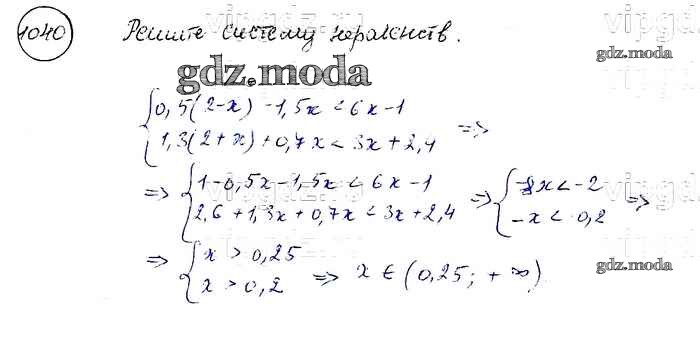 1040 Решите систему неравенств.
gdz.moda
{ 0,5(2-x) - 1,5x < 6x - 1
{ 1,3(2+x) + 0,7x < 3x + 2,4 =>
=> { 1 - 0,5x - 1,5x < 6x - 1
{ 2,6 + 1,3x + 0,7x < 3x + 2,4 => { -8x < -2
{ -x < -0,2 =>
=> { x > 0,25
{ x > 0,2 => x ∈ (0,25; +∞)
gdz.moda
gdz.moda
gdz.moda